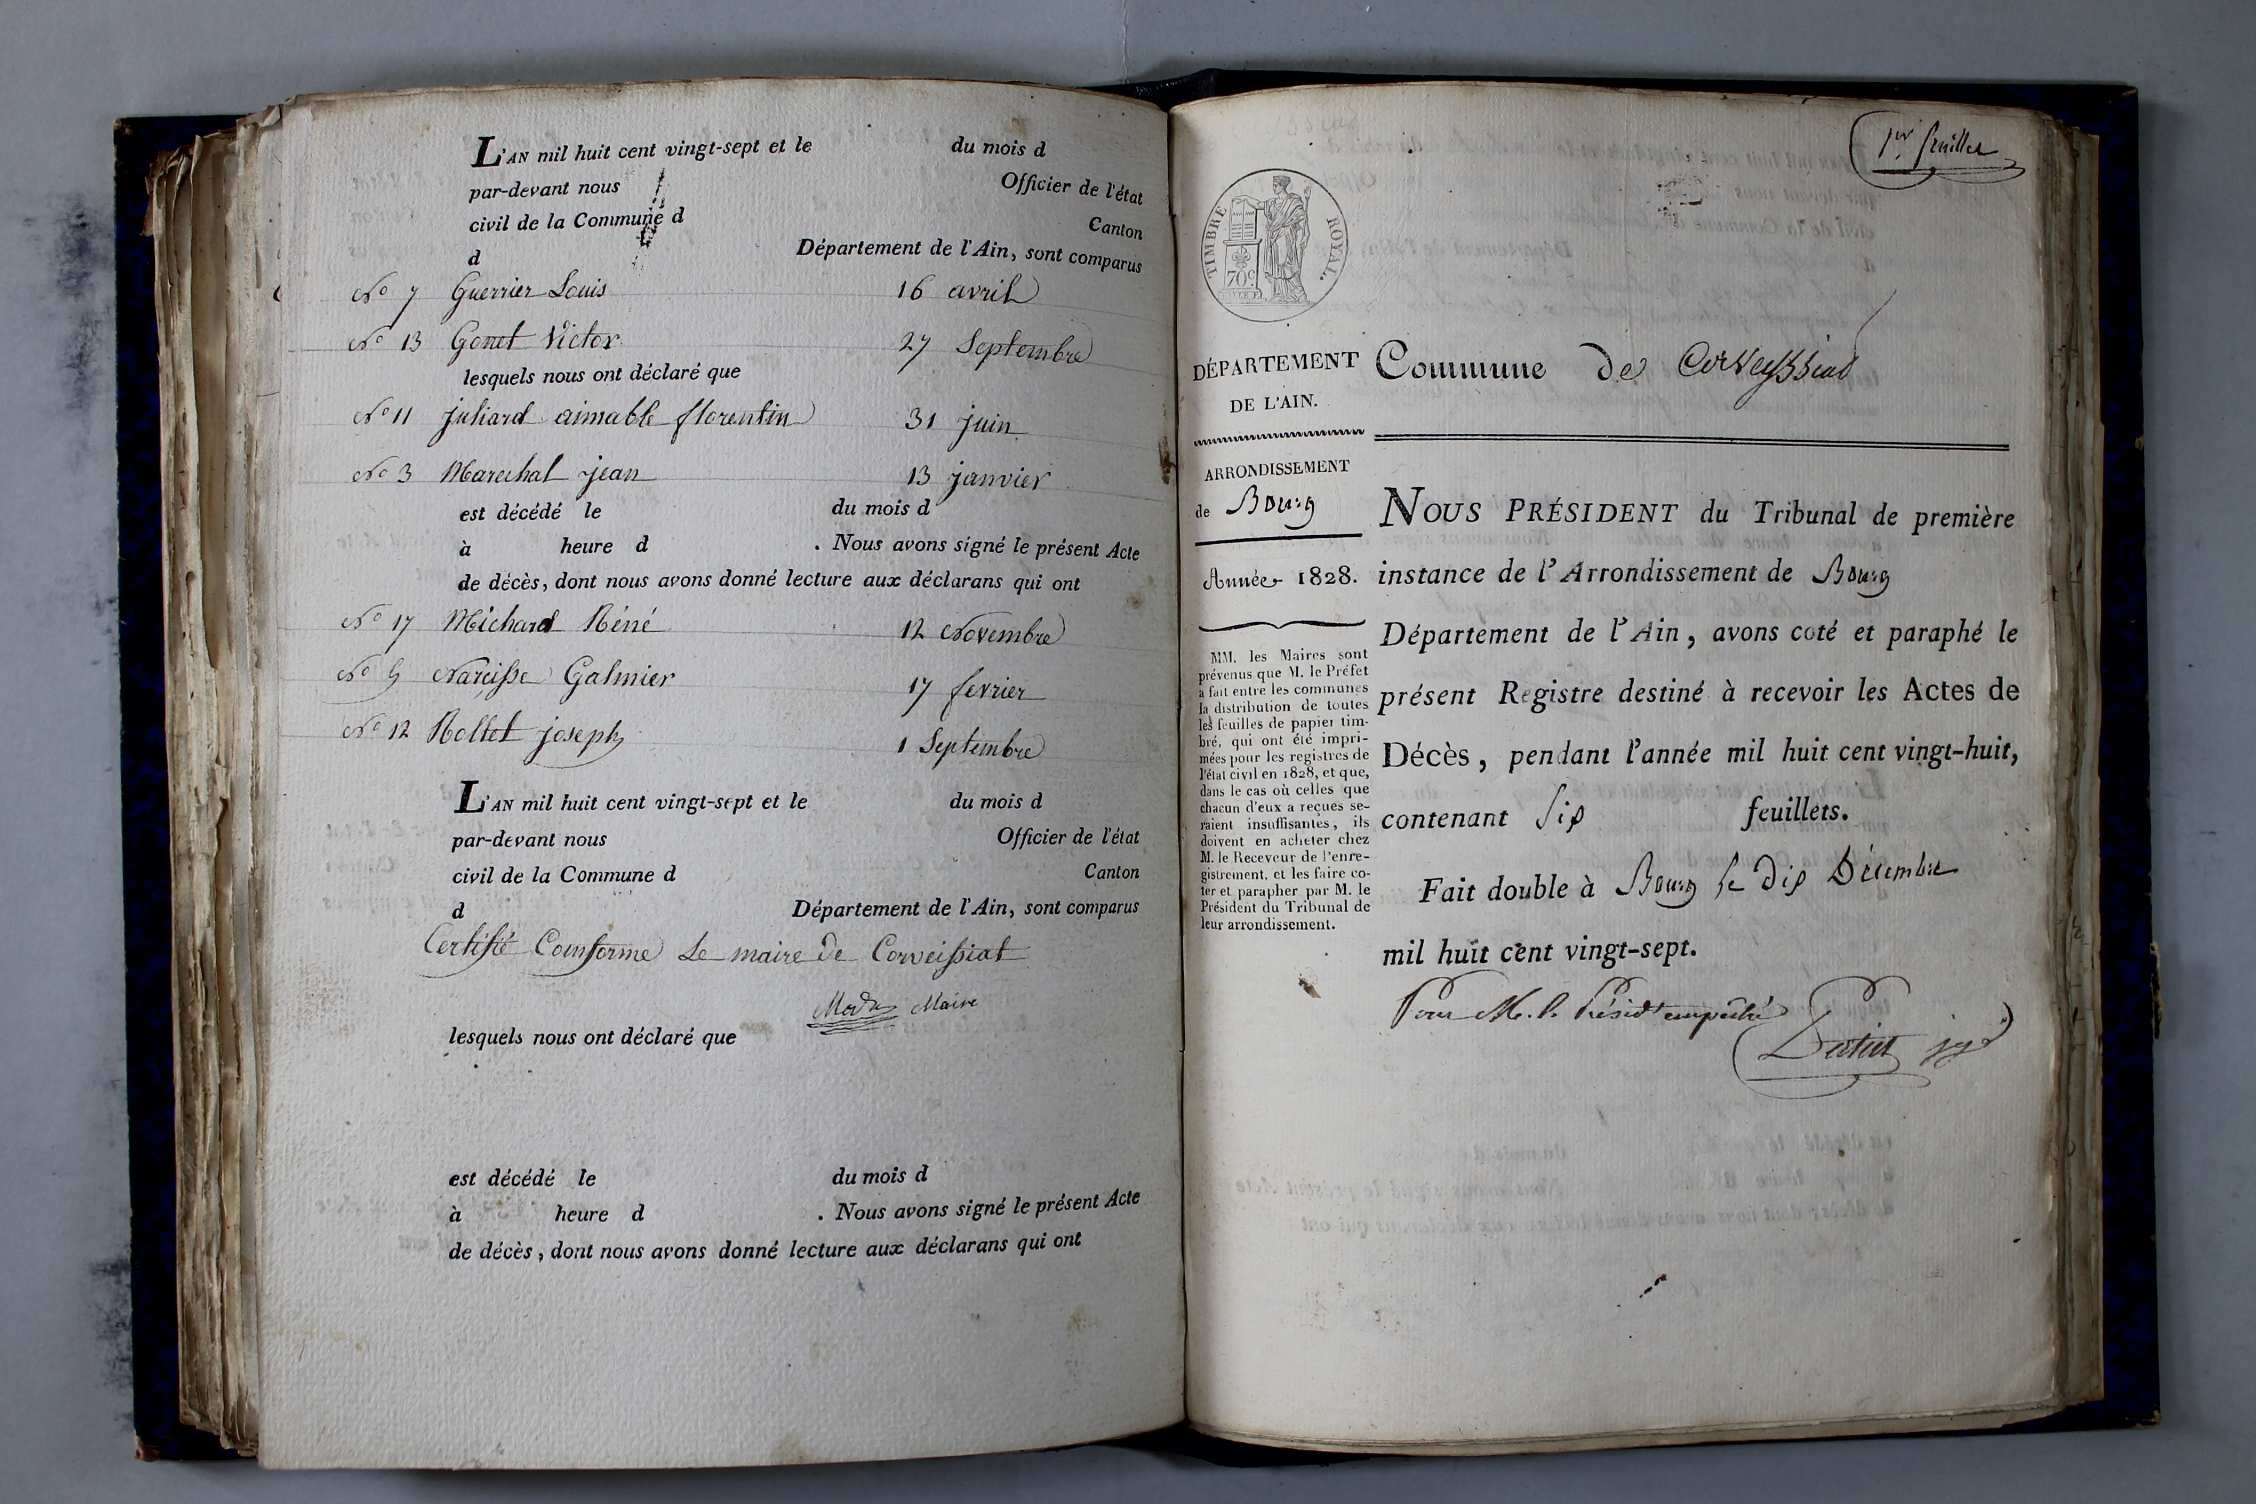 L'AN mil huit cent vingt-sept et le du mois d
par-devant nous Officier de l'état
civil de la Commune d Canton
d Département de l'Ain, sont comparus
No 7 Guerrier Louis 16 avril
No 13 Gonet Victor 27 Septembre
lesquels nous ont déclaré que
No 11 juliard aimable florentin 31 juin
No 3 Marechal jean 13 janvier
est décédé le du mois d
à heure d . Nous avons signé le présent Acte
de décès, dont nous avons donné lecture aux déclarans qui ont
No 17 Michard Réné 12 Novembre
No Narcisse Galmier 17 fevrier
No 12 Rollet joseph 1 Septembre
L'AN mil huit cent vingt-sept et le du mois d
par-devant nous Officier de l'état
civil de la Commune d Canton
d Département de l'Ain, sont comparus
Certifié Comforme Le maire de Corveissiat
Maire
lesquels nous ont déclaré que
est décédé le du mois d
à heure d . Nous avons signé le présent Acte
de décès, dont nous avons donné lecture aux déclarans qui ont
1er feuillet
TIMBRE ROYAL.
70c
DÉPARTEMENT
DE L'AIN.
ARRONDISSEMENT
de Bourg
Année 1828.
MM. les Maires sont
prévenus que M. le Préfet
a fait entre les communes
la distribution de toutes
les feuilles de papier tim-
bré, qui ont été impri-
mées pour les registres de
l'état civil en 1828, et que,
dans le cas où celles que
chacun d'eux a reçues se-
raient insuffisantes, ils
doivent en acheter chez
M. le Receveur de l'enre-
gistrement, et les faire co-
ter et parapher par M. le
Président du Tribunal de
leur arrondissement.
Commune de Corveyssiat
NOUS PRÉSIDENT du Tribunal de première
instance de l'Arrondissement de Bourg
Département de l'Ain, avons coté et paraphé le
présent Registre destiné à recevoir les Actes de
Décès, pendant l'année mil huit cent vingt-huit,
contenant Six feuillets.
Fait double à Bourg le Dix Décembre
mil huit cent vingt-sept.
Pour M. le Présidt empêché